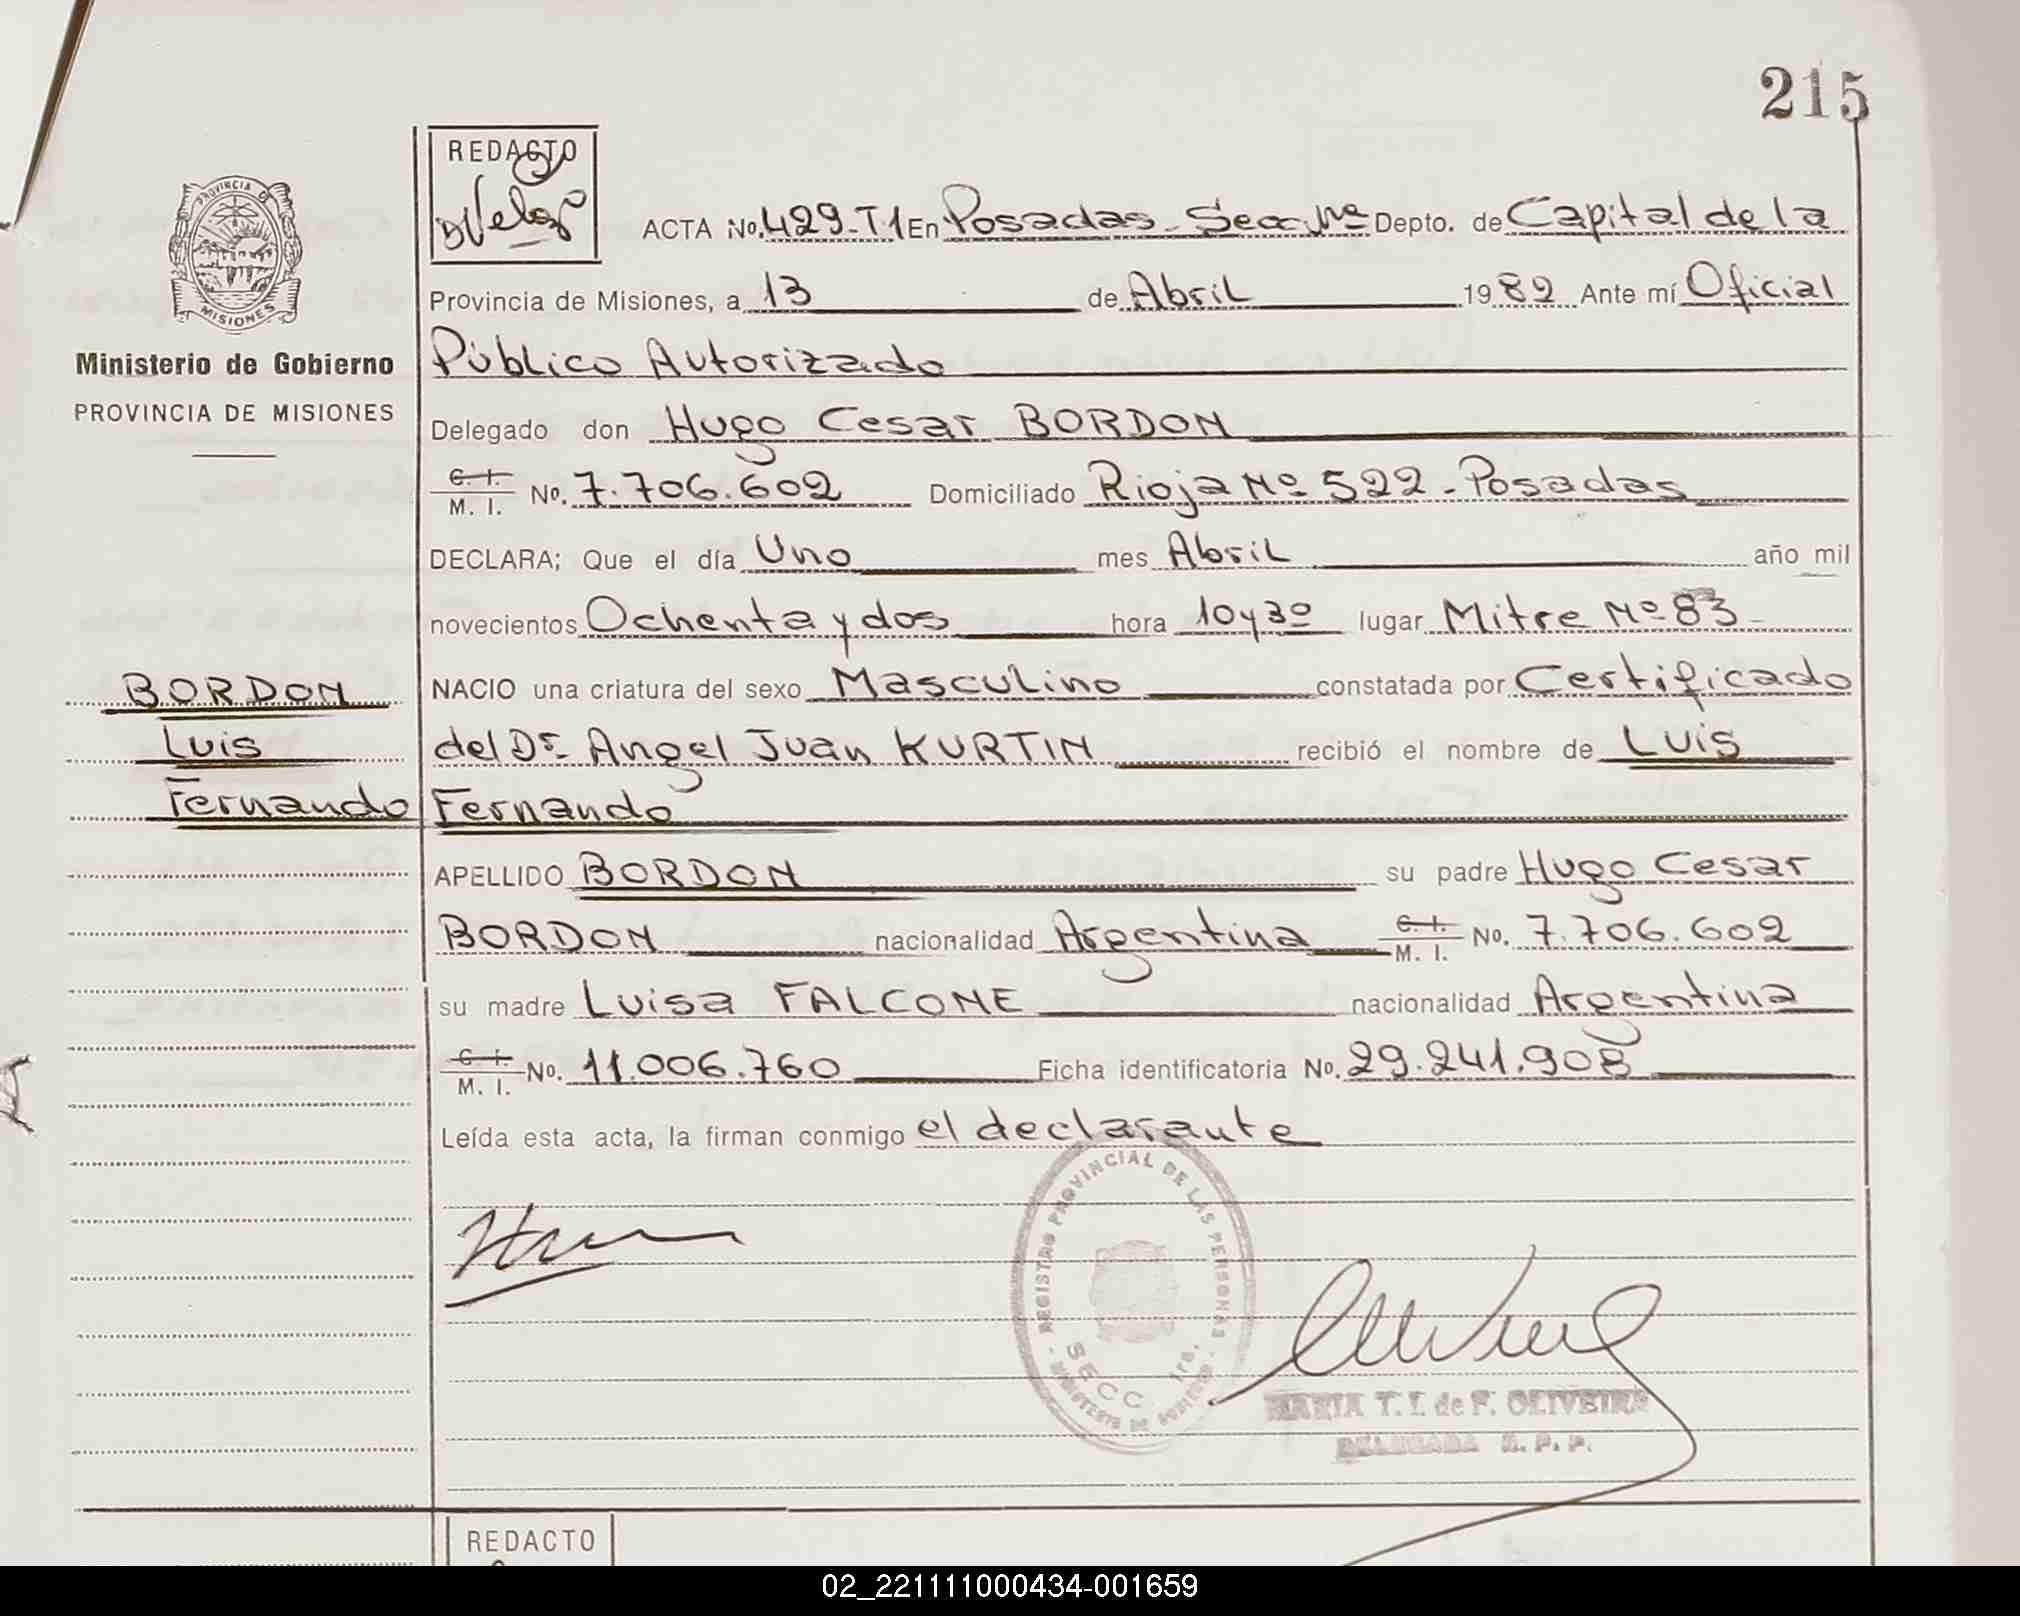 215
REDACTO
Velaz
ACTA No. 429-T1 En Posadas-Secc. 1ra Depto. de Capital de la
Provincia de Misiones, a 13 de Abril 1982 Ante mí Oficial
Público Autorizado
Delegado don Hugo Cesar BORDON
C. I. M. I. No. 7.706.602 Domiciliado Rioja Nº 522-Posadas
DECLARA; Que el día Uno mes Abril año mil
novecientos Ochenta y dos hora 10 y 30 lugar Mitre Nº 83-
NACIO una criatura del sexo Masculino constatada por Certificado
del Dr. Angel Juan KURTIN recibió el nombre de Luis
Fernando
APELLIDO BORDON su padre Hugo Cesar
BORDON nacionalidad Argentina C. I. M. I. No. 7.706.602
su madre Luisa FALCONE nacionalidad Argentina
C. I. M. I. No. 11.006.760 Ficha identificatoria No. 29.241.908
Leída esta acta, la firman conmigo el declarante
PROVINCIA DE MISIONES
Ministerio de Gobierno
PROVINCIA DE MISIONES
BORDON
Luis
Fernando
REGISTRO PROVINCIAL DE LAS PERSONAS
- MINISTERIO DE GOBIERNO -
SECC. 1ra.
MARIA T. I. de F. OLIVEIRA
DELEGADA R. P. P.
REDACTO
02_221111000434-001659